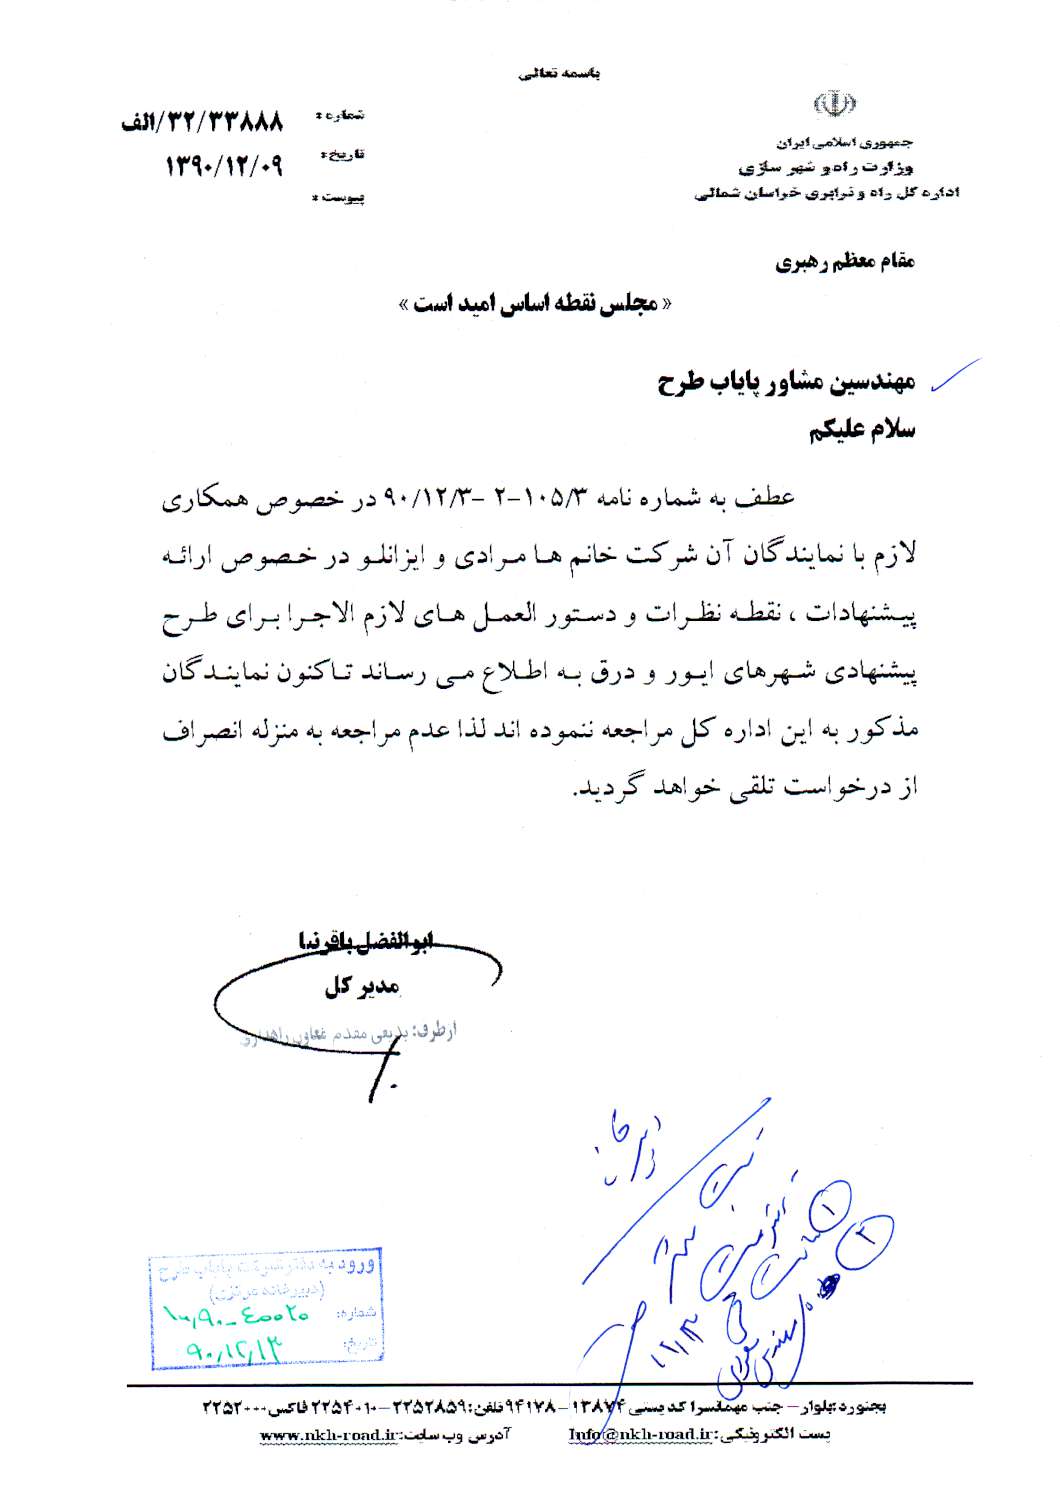 باسمه تعالی
جمهوری اسلامی ایران
وزارت راه و شهر سازی
اداره کل راه و ترابری خراسان شمالی
شماره :
۳۲/۳۳۸۸۸/الف
تاریخ :
۱۳۹۰/۱۲/۰۹
پیوست :
مقام معظم رهبری
« مجلس نقطه اساس امید است »
مهندسین مشاور پایاب طرح
سلام علیکم
عطف به شماره نامه ۱۰۵/۳-۲ -۹۰/۱۲/۳ در خصوص همکاری
لازم با نمایندگان آن شرکت خانم ها مرادی و ایزانلو در خصوص ارائه
پیشنهادات ، نقطه نظرات و دستور العمل های لازم الاجرا برای طرح
پیشنهادی شهرهای ایور و درق به اطلاع می رساند تاکنون نمایندگان
مذکور به این اداره کل مراجعه ننموده اند لذا عدم مراجعه به منزله انصراف
از درخواست تلقی خواهد گردید.
ابوالفضل باقرنیا
مدیر کل
ازطرف: بدیعی مقدم معاون راهداری
ورود به دفتر شرکت پایاب طرح
(دبیرخانه مرکزی)
شماره:
تاریخ: ۹۰,۱۲,۱۳
بجنورد:بلوار– جنب مهمانسرا کد پستی ۱۳۸۷۴–۹۴۱۷۸ تلفن:۲۲۵۲۸۵۹–۲۲۵۴۰۱۰ فاکس:۲۲۵۲۰۰۰
پست الکترونیکی:Info@nkh-road.ir آدرس وب سایت:www.nkh-road.ir